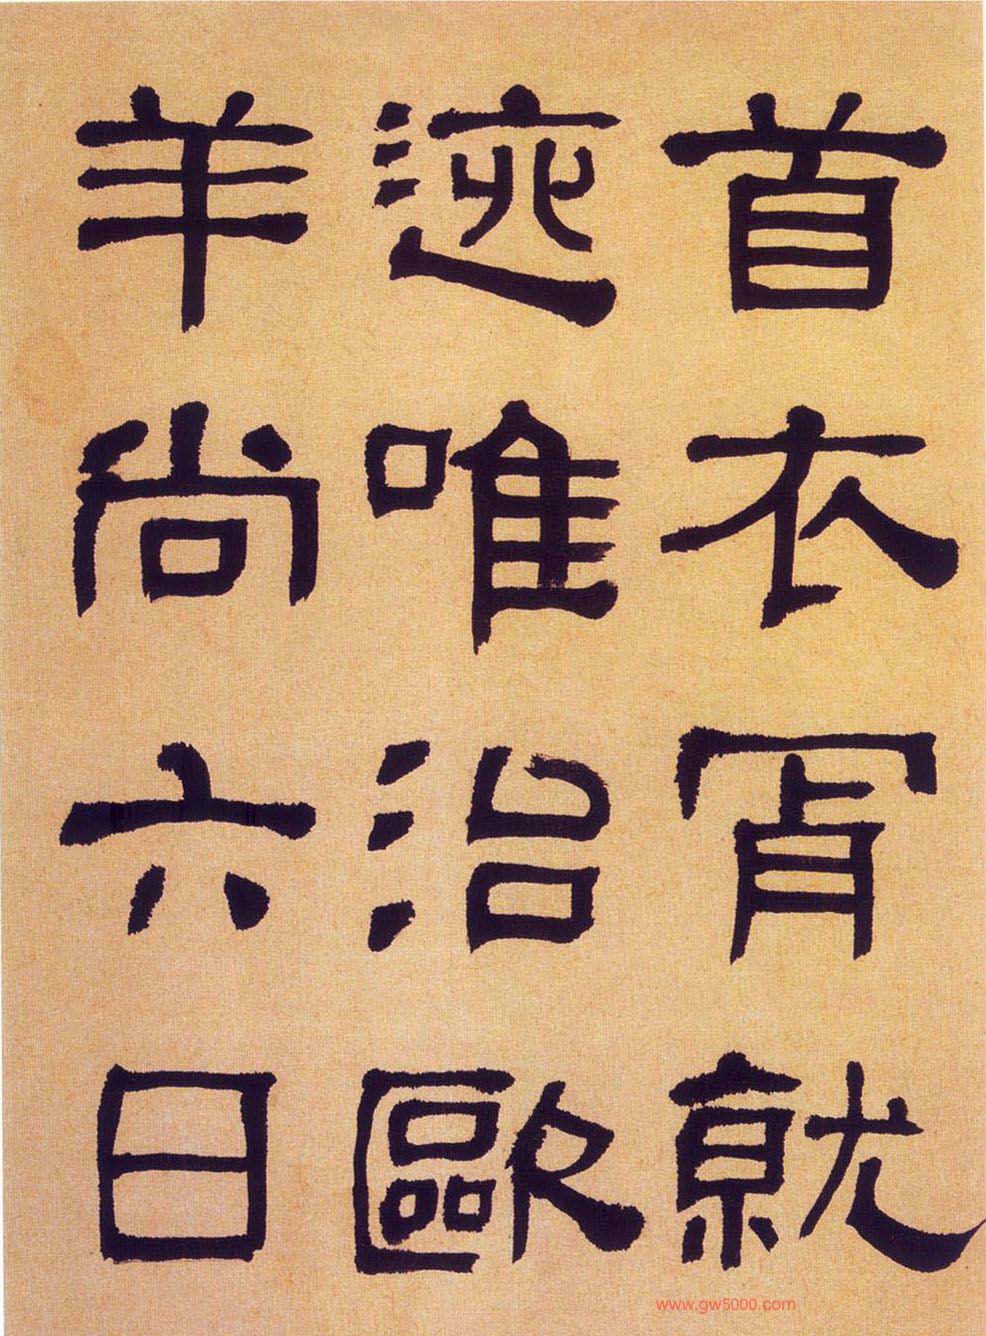 首衣就
迹唯治歐
羊尚六日
www.gw5000.com